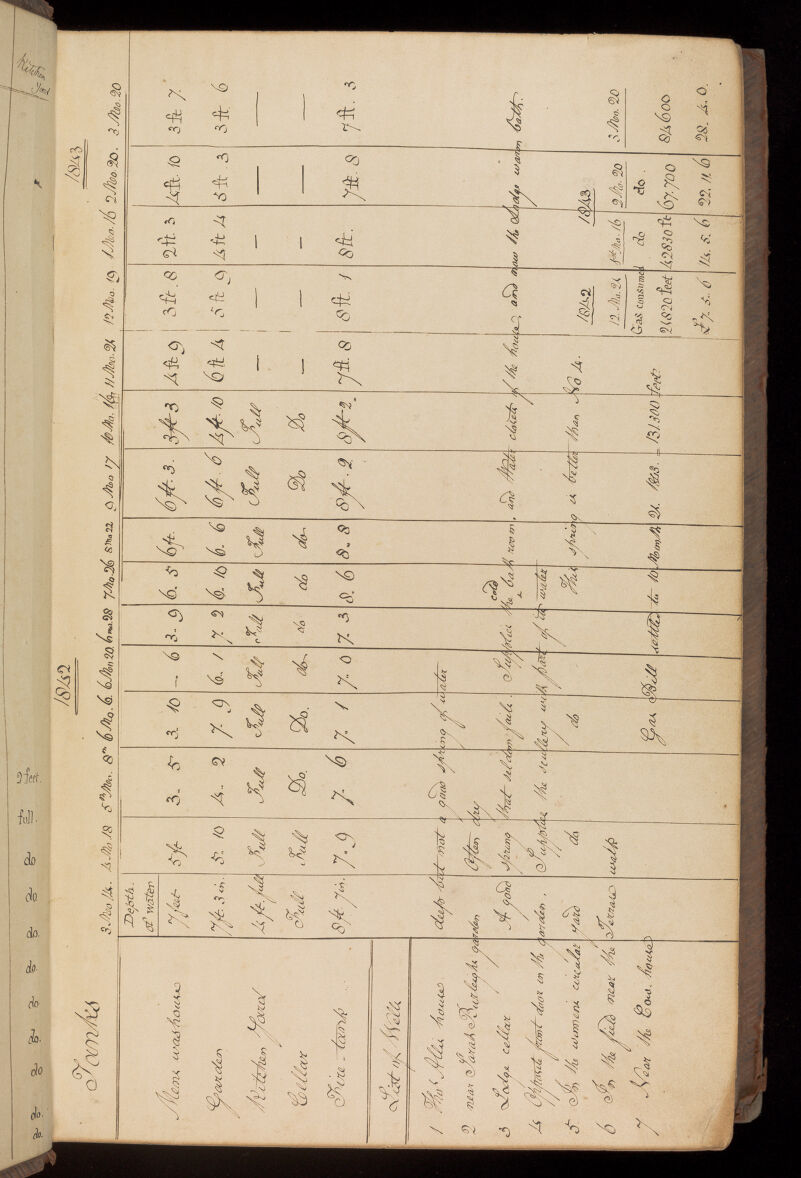 Kitchen
Yard
2 feet.
full.
do
do.
do.
do.
do
do.
do
do.
do.
Tanks
1842
1843
3 Mo 14. 4. Mo 18 5th Mo. 8th 6 Mo. 6. 6 Mon 20. 6 mo 28 7. Mo 26 8 mo 22 9 Mon 17 10 Mo. 19. 11 Mon. 21 12 Mo. 19 1 Mon. 16 2 Mon 20. 3 Mon 20
Depth.
of water
Mens washouse 7 feet 5 ft 3. 5 3. 10 — 6 3. 9 6. 5 6 ft. 6 ft. 3. 3 ft 3 4 ft 9 3 ft. 8 2 ft. 3 4 ft. 10 3 ft 7.
Garden 7 ft. 3 in. 5. 10 4. 2 7. 9 6. 1 7. 2 6. 10 6. 6 6 ft. 6 4 ft. 10 6 ft 4 5 ft 9 4 ft 4 5 ft 3 3 ft 6
Kitchen Yard 4 ft. full Full Full Full Full Full Full Full Full Full — — — — —
Cellar Full Full Do. Do. do do do do Do Do — — — — —
Fire-tank 8 ft 7 in. 7. 9 7. 6 7. 1 7. 0 7. 3 8. 6 8. 8 8 ft. 2 8 ft 2. 7 ft. 8 8 ft. 1 8 ft. 7 ft. 8 7 ft. 3
List of Wells
1 house deep but not a good spring of water
2 near Sarah Burleighs garden Often dry
3 Lodge cellar A good spring that seldom fails. Supplies the cold bath room, and Water closets of the house, and now the Lodge warm bath.
4 Opposite front door in the garden. Supplies the scullery with part of its water
5 In the womens circular yard do do This spring is better than No 4.
6 In the field near the Terrace walk
7 Near the Cow. house
1842
1843
12. Mo. 21 1st Mo. 16 2 Mo. 20 3. Mon. 20
Gas consumed do do.
21820 feet 42830 ft 67.700 84600
£7. 5. 6 14. 5. 6 22. 11. 6 28. 4. 0.
Gas Bill settled to 10 Month 21. 1843. = 131300 feet